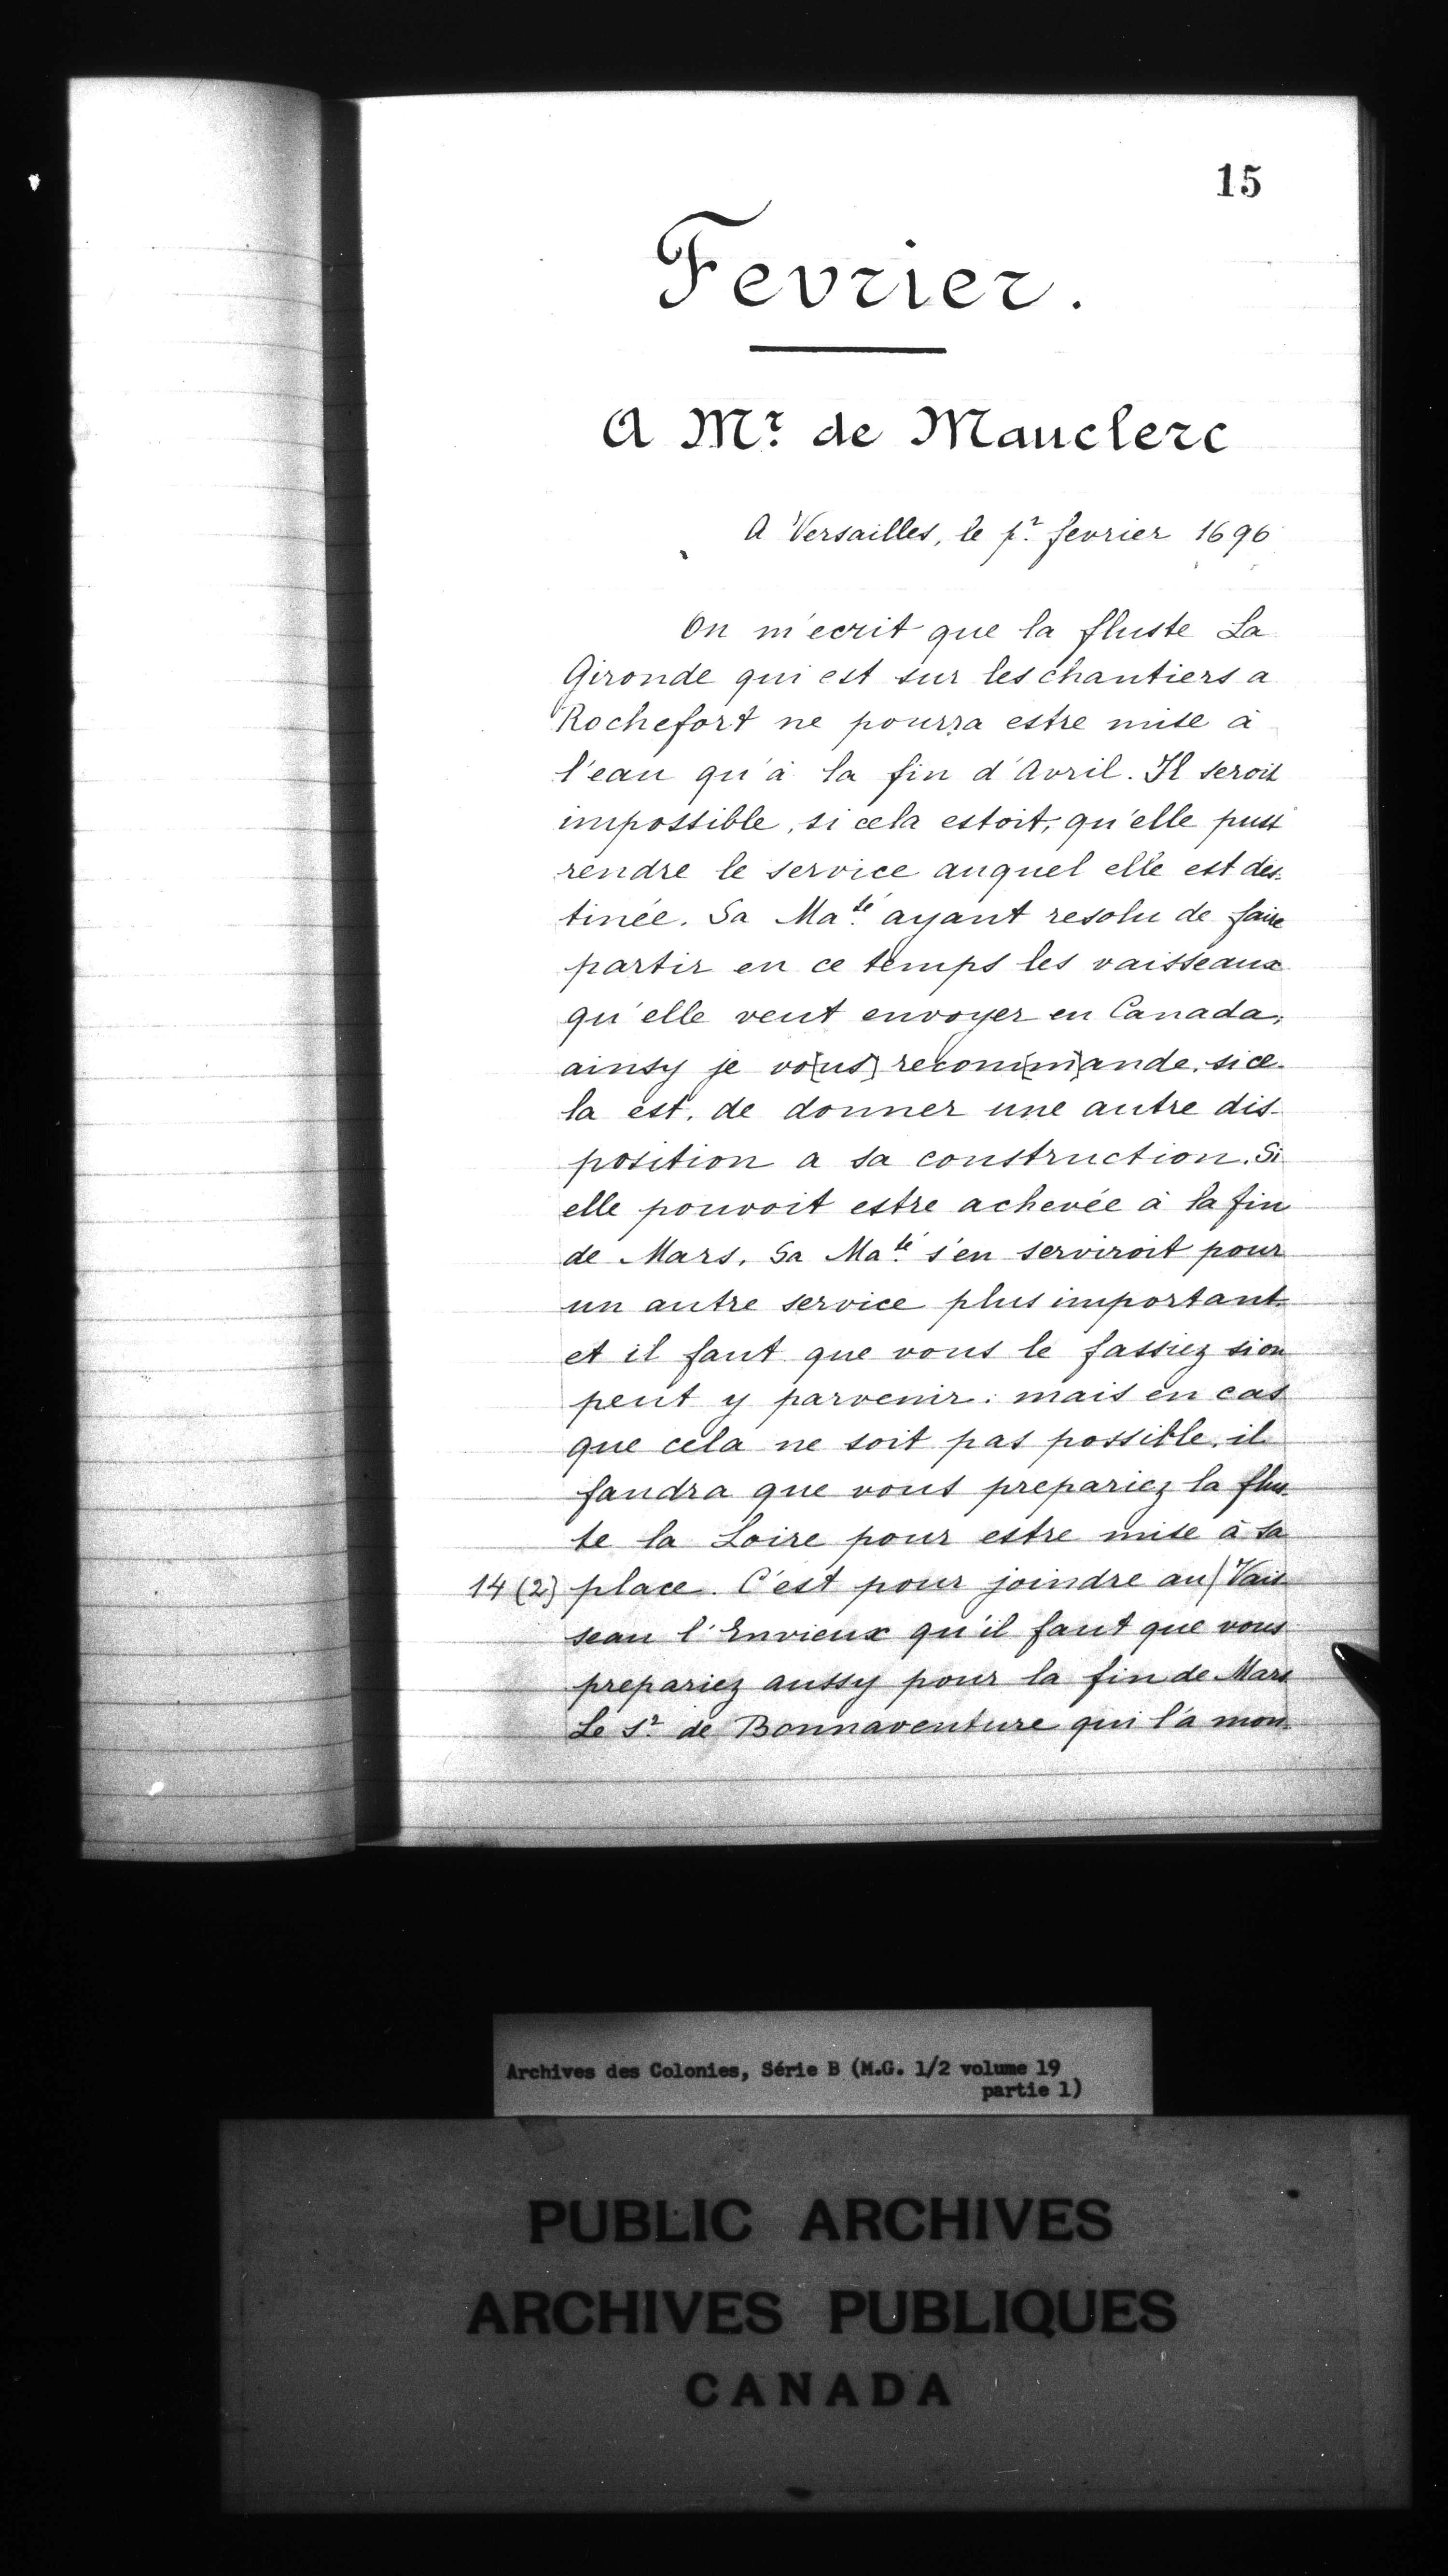 15
Fevrier.
A Mr. de Mauclerc
A Versailles, le pr. fevrier 1696
On m'ecrit que la fluste La
Gironde qui est sur les chantiers a
Rochefort ne pourra estre mise à
l'eau qu'à la fin d'Avril. Il seroit
impossible, si cela estoit, qu'elle pust
rendre le service auquel elle est des-
tinée. Sa Maté ayant resolu de faire
partir en ce temps les vaisseaux
qu'elle veut envoyer en Canada,
ainsy je vo[us] recom[m]ande, si ce-
la est, de donner une autre dis-
position a sa construction. Si
elle pouvoit estre achevée à la fin
de Mars, Sa Maté s'en serviroit pour
un autre service plus important
et il faut que vous le fassiez si on
peut y parvenir: mais en cas
que cela ne soit pas possible, il
faudra que vous prepariez la flus-
te la Loire pour estre mise à sa
14 (2) place. C'est pour joindre au/Vais-
seau l'Envieux qu'il faut que vous
prepariez aussy pour la fin de Mars
Le Sr. de Bonnaventure qui l'a mon-
Archives des Colonies, Série B (M.G. 1/2 volume 19
partie 1)
PUBLIC ARCHIVES
ARCHIVES PUBLIQUES
CANADA